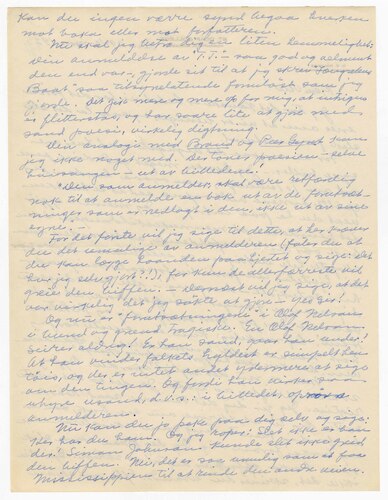 Kan du ingen være synd begaa hverken
mot boken eller mot forfatteren.
Nu skal jeg si dig en liten hemmelighet:
din anmeldelse av T.T. som god og velment
den end var, gjorde sit til at jeg skrev Længselens
Baat, saa tilsynelatende formløst som jeg
gjorde. Det gir mere og mere op for mig, at intrigen
er flitterstas, og har saare lite at gjøre med
sand poesi, virkelig digtning.
Din analogi med Brand og Peer Gynt kan
jeg ikke noget med. Der toner poesien – selve
– ut av billedene.
"Den som anmelder, skal være retfærdig
nok til at anmelde en bok ut av de forutsæt-
ninger som er nedlagt i den, ikke ut av sine
egne." –
For det første vil jeg sige til dette, at her kræver
du det umulige av anmelderen (føler du at
du kan lægge haanden paa hjertet og sige: Det
har jeg selv gjort?!), for kun de allerfærreste vil
greie den biffen. – Dernæst vil jeg sige, at det
var virkelig det jeg søkte at gjøre – Yes Sir!
Og nu er "forutsætningene" i Olof Nelson
i bund og grund tragiske. En Olof Nelson
seirer aldrig! Es han sand, saa kan han ei!
At han vinder folkets hyldest er simpelthen
tøis, og der er intet andet ydermere at sige
om den tingen. Og fordi han virker som
uhyre usand, d.v.s.: i billedet,
anmelderen.
Nu kan du jo peke paa dig selv og sige:
Her har du ham. Og jeg roper: Slet ikke er han
der! Simon Johnson kunde slet ikke greid
den biffen. Nei, det er saa umulig som at faa
Mississippien til at rinde den andre veien.